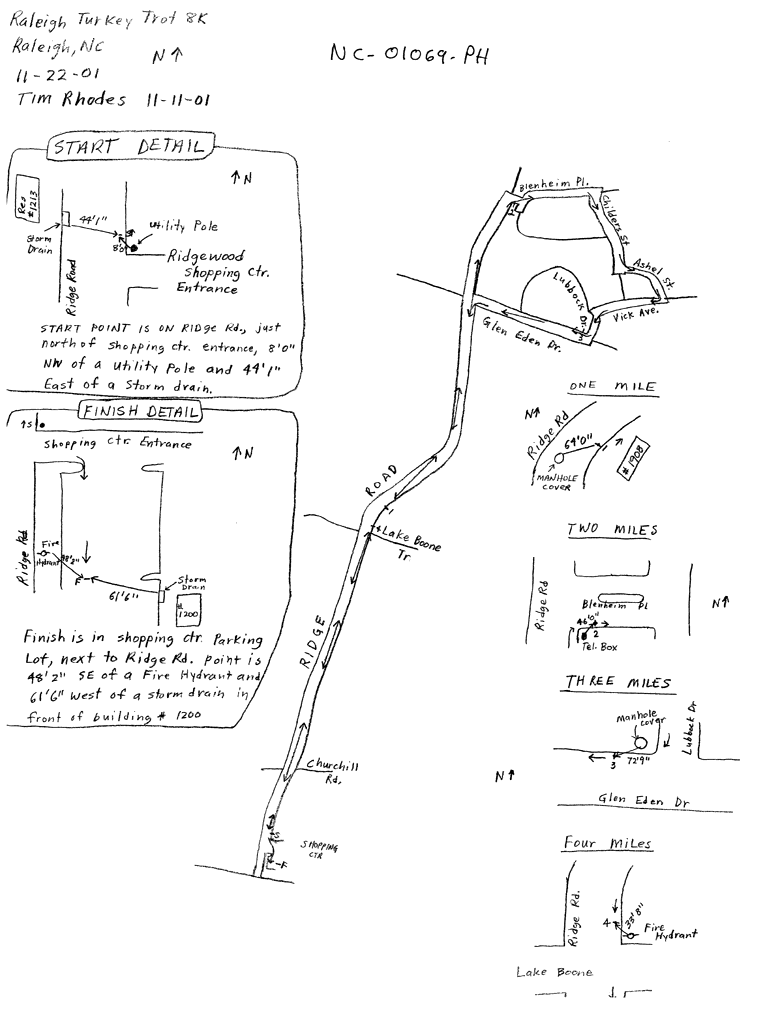 Raleigh Turkey Trot 8K
Raleigh, NC
N
11-22-01
Tim Rhodes 11-11-01
NC-01069-PH
START DETAIL
N
Res
#1213
44'1"
Storm
Drain
8'0"
Utility Pole
Ridgewood
Shopping Ctr.
Entrance
Ridge Road
START POINT IS ON RIDGE Rd., just
north of shopping ctr. entrance, 8'0"
NW of a utility Pole and 44'1"
East of a Storm drain.
FINISH DETAIL
S
Shopping Ctr. Entrance
N
Ridge Rd
Fire
Hydrant
48'2"
F
61'6"
Storm
Drain
#
1200
Finish is in shopping ctr. Parking
Lot, next to Ridge Rd. Point is
48'2" SE of a Fire Hydrant and
61'6" west of a storm drain in
front of building # 1200
Blenheim Pl.
2
Childers St.
Ashel St.
Vick Ave.
Lubbock Dr.
3
Glen Eden Dr.
ROAD
1
4
Lake Boone
Tr.
RIDGE
Churchill
Rd.
S
SHOPPING
CTR
F
ONE MILE
N
Ridge Rd
64'0"
1
MANHOLE
COVER
#1908
TWO MILES
Ridge Rd
Blenheim Pl
N
46'5"
2
Tel. Box
THREE MILES
manhole
cover
Lubbock Dr
3
72'9"
N
Glen Eden Dr
FOUR MILES
Ridge Rd.
4
33'8"
Fire
Hydrant
Lake Boone